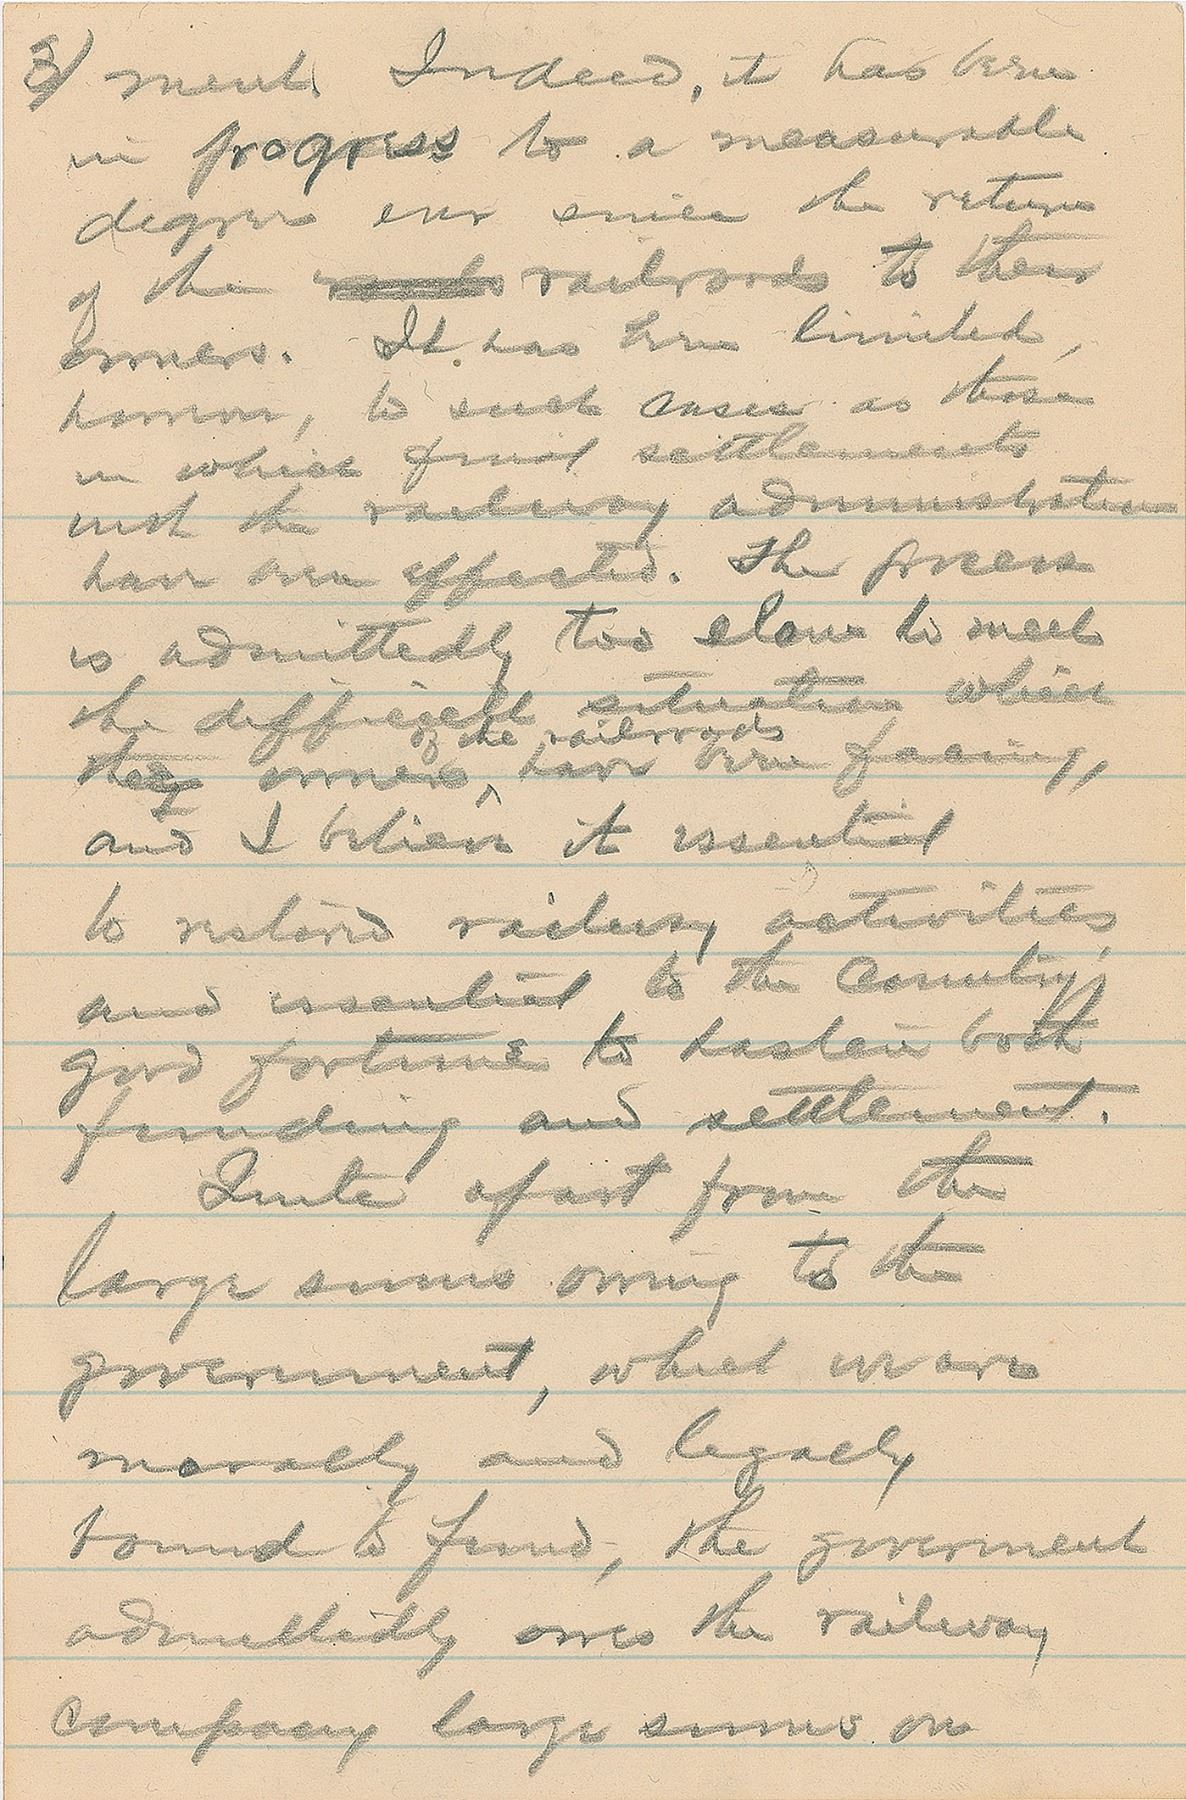 3/ ment. Indeed, it has been
in progress to a measurable
degree ever since the return
of the railroads to their
owners. It has been limited,
however, to such cases as those
in which final settlements
with the railway administration
have been effected. The process
is admittedly too slow to meet
the difficult situation which
of the railroads
the owners, ^ have been facing,
and I believe it essential
to restored railway activities,
and essential to the country's
good fortune to hasten both
funding and settlement.
Quite apart from the
large sums owing to the
government, which we are
morally and legally
bound to fund, the goverment
admittedly owes the railway
company large sums on